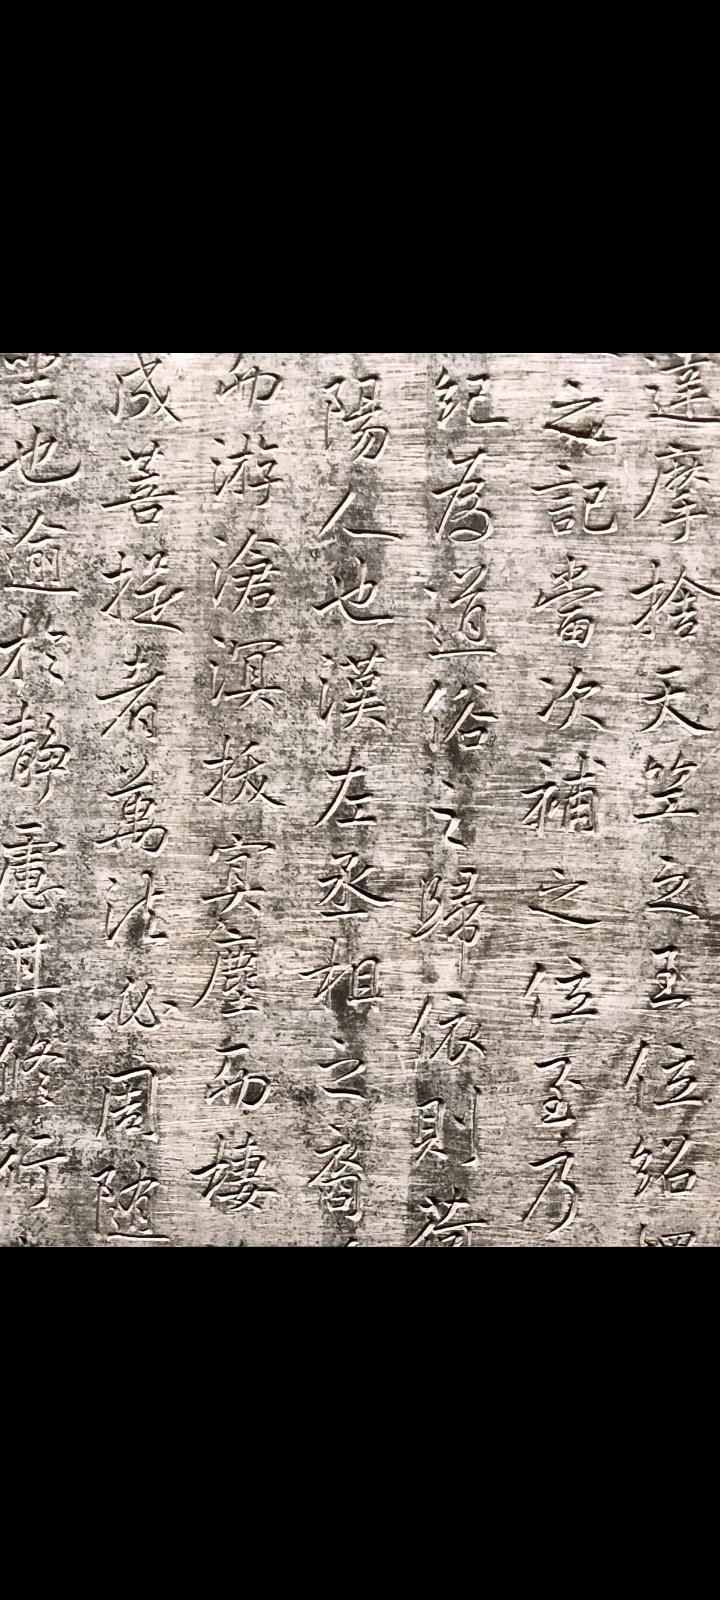 達摩捨天笠之王位紹
之記當次補之位至乃
紀為道俗之歸依則荷
陽人也漢左丞相之裔
而游滄溟拔寘塵而棲
成菩提者萬法必周隨
聖也逾於靜慮其修行